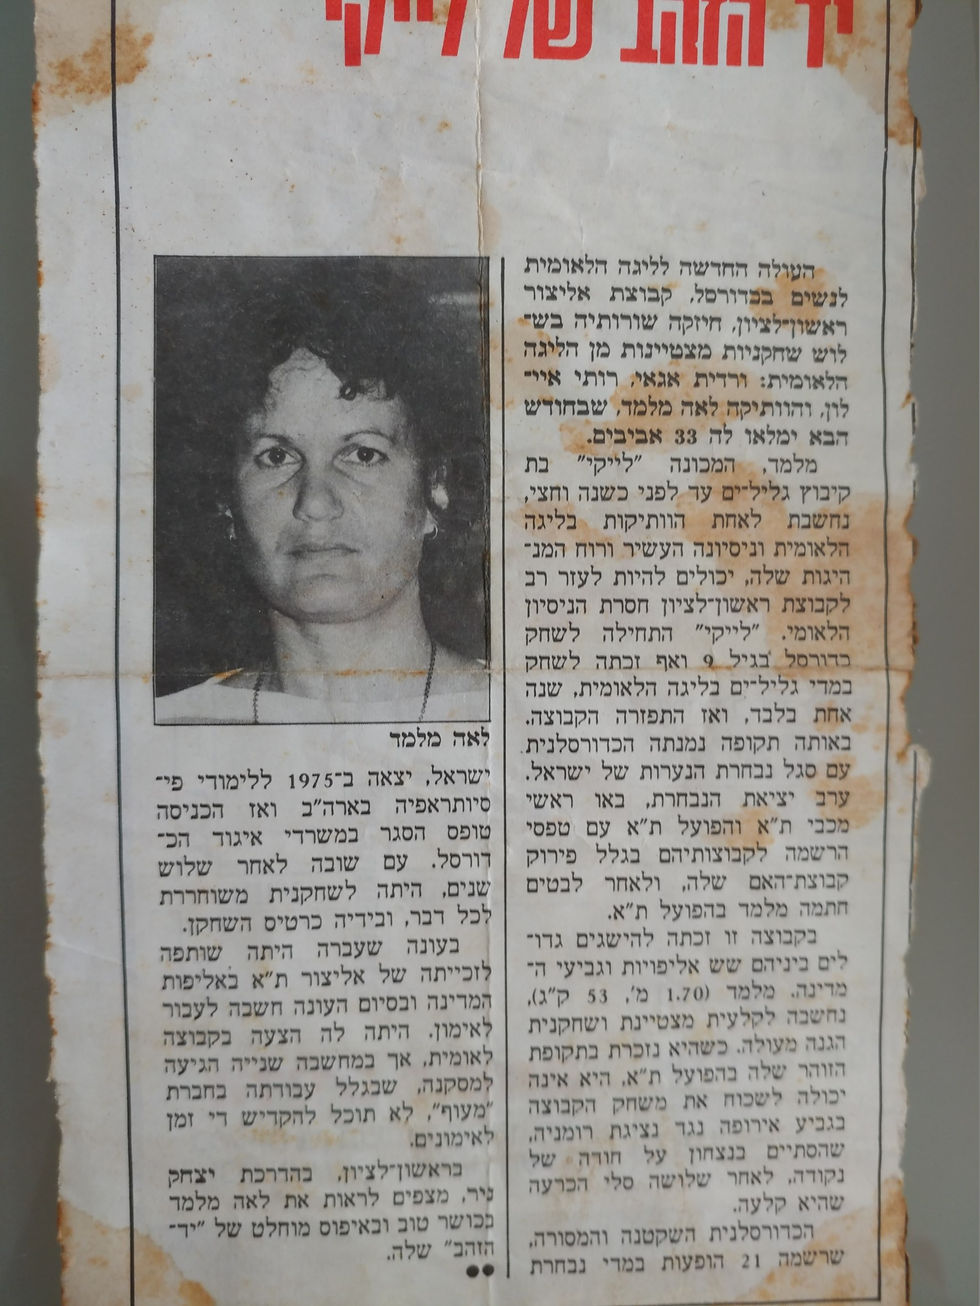 יד הזהב של לייקי
העולה החדשה לליגה הלאומית
לנשים בכדורסל, קבוצת אליצור
ראשון־לציון, חיזקה שורותיה בש־
לוש שחקניות מצטיינות מן הליגה
הלאומית: ורדית אגאי, רותי איי־
לון, והוותיקה לאה מלמד, שבחודש
הבא ימלאו לה 33 אביבים.
מלמד, המכונה "לייקי" בת
קיבוץ גליל־ים עד לפני כשנה וחצי,
נחשבת לאחת הוותיקות בליגה
הלאומית וניסיונה העשיר ורוח המנ־
היגות שלה, יכולים להיות לעזר רב
לקבוצת ראשון־לציון חסרת הניסיון
הלאומי. "לייקי" התחילה לשחק
כדורסל בגיל 9 ואף זכתה לשחק
במדי גליל־ים בליגה הלאומית, שנה
אחת בלבד, ואז התפזרה הקבוצה.
באותה תקופה נמנתה הכדורסלנית
עם סגל נבחרת הנערות של ישראל.
ערב יציאת הנבחרת, באו ראשי
מכבי ת"א והפועל ת"א עם טפסי
הרשמה לקבוצותיהם בגלל פירוק
קבוצת־האם שלה, ולאחר לבטים
חתמה מלמד בהפועל ת"א.
בקבוצה זו זכתה להישגים גדו־
לים ביניהם שש אליפויות וגביעי ה־
מדינה. מלמד (1.70 מ', 53 ק"ג),
נחשבה לקלעית מצטיינת ושחקנית
הגנה מעולה. כשהיא נזכרת בתקופת
הזוהר שלה בהפועל ת"א, היא אינה
יכולה לשכוח את משחק הקבוצה
בגביע אירופה נגד נציגת רומניה,
שהסתיים בנצחון על חודה של
נקודה, לאחר שלושה סלי הכרעה
שהיא קלעה.
הכדורסלנית השקטנה והמסורה,
שרשמה 21 הופעות במדי נבחרת
לאה מלמד
ישראל, יצאה ב־1975 ללימודי פי־
סיותראפיה בארה"ב ואז הכניסה
טופס הסגר במשרדי איגוד הכ־
דורסל. עם שובה לאחר שלוש
שנים, היתה לשחקנית משוחררת
לכל דבר, ובידיה כרטיס השחקן.
בעונה שעברה היתה שותפה
לזכייתה של אליצור ת"א באליפות
המדינה ובסיום העונה חשבה לעבור
לאימון. היתה לה הצעה בקבוצה
לאומית, אך במחשבה שנייה הגיעה
למסקנה, שבגלל עבודתה בחברת
"מעוף", לא תוכל להקדיש די זמן
לאימונים.
בראשון־לציון, בהדרכת יצחק
ניר, מצפים לראות את לאה מלמד
בכושר טוב ובאיפוס מוחלט של "יד־
הזהב" שלה.
●●